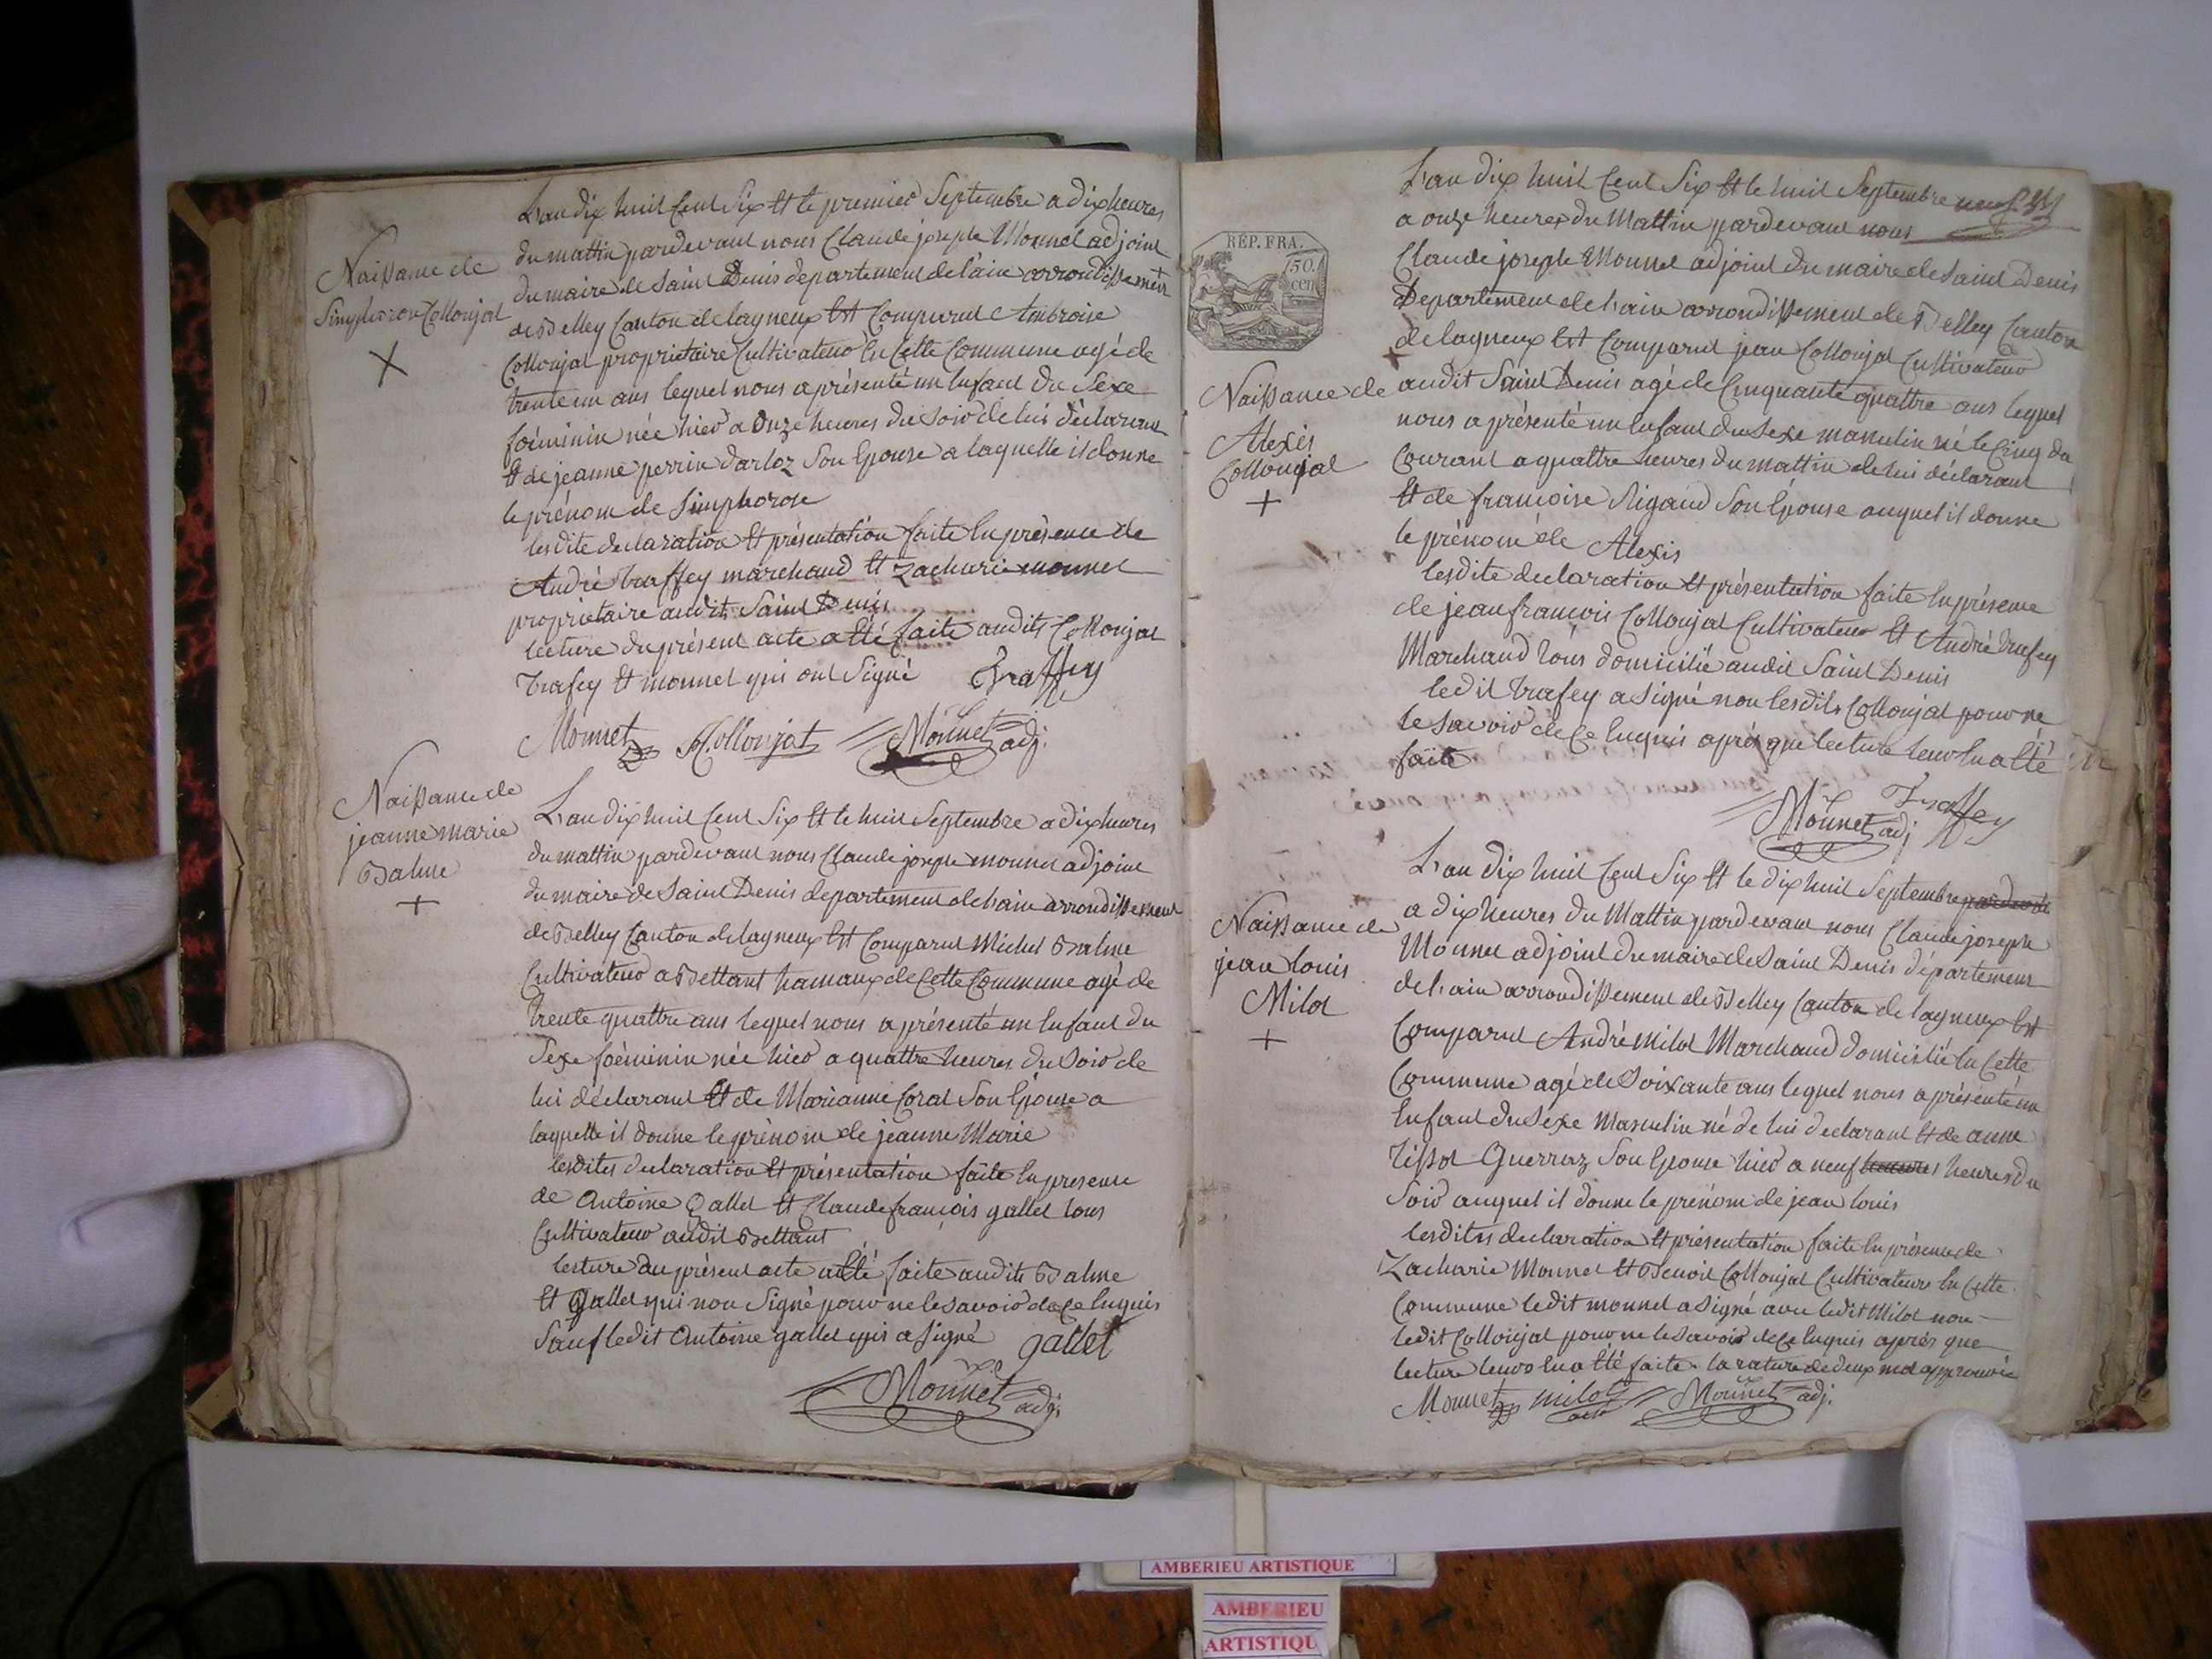 Naissance de
Simphorose Collonjat
X
L'an dix huit Cent Six Et le premier Septembre a dix heures
du mattin pardevant nous Claude joseph Monnet adjoint
du maire de Saint Denis departement de l'ain arrondissement
de Belley Canton de lagneux Est Comparut Ambroise
Collonjat proprietaire Cultivateur En Cette Commune agé de
trente un ans lequel nous a présenté un Enfant du Sexe
foéminin née hier a Onze heures du Soir de lui déclarant
Et de jeanne perrin darloz Son Epouse a laquelle il donne
le prénom de Simphorose
lesdite declaration Et présentation faite En présence de
André traffey marchand Et Zacharie monnet
proprietaire audit Saint Denis
lecture du présent acte a Eté faite audits Collonjat
trafey Et monnet qui ont Signé Traffey
Monnet Collonjat Monnet adj.
Naissance de
jeanne marie
Balme
+
L'an dix huit Cent Six Et le huit Septembre a dix heures
du mattin pardevant nous Claude joseph monnet adjoint
du maire de Saint Denis departement de l'ain arrondissement
de Belley Canton de lagneux Est Comparut Michel Balme
Cultivateur a Bettant hamaux de Cette Commune agé de
trente quattre ans lequel nous a présenté un Enfant du
Sexe foéminin née hier a quattre heures du Soir de
lui déclarant Et de Marianne Corat Son Epouse a
laquelle il donne le prénom de jeanne Marie
lesdites declaration Et présentation faite En presence
de Antoine Gallet Et Claude françois gallet tous
Cultivateur audit Bettant
lecture du présent acte a Eté faite audits Balme
Et Gallet qui non Signé pour ne le Savoir de Ce Enquis
Sauf ledit Antoine gallet qui a signé gallet
Monnet adj.
RÉP. FRA.
50.
cen
Naissance de
Alexis
Collonjat
+
L'an dix huit Cent Six Et le huit Septembre
a onze heures du Mattin pardevant nous
Claude joseph Monnet adjoint du maire de Saint Denis
Departement de l'ain arrondissement de Belley Canton
de lagneux Est Comparut jean Collonjat Cultivateur
audit Saint Denis agé de Cinquante quattre ans lequel
nous a présenté un Enfant du Sexe masculin né le Cinq du
Courant a quattre heures du mattin de lui déclarant
Et de francoise Rigaud Son Epouse auquel il donne
le prénom de Alexis
lesdite declaration Et présentation faite En présence
de jean francois Collonjat Cultivateur Et André trafey
Marchand tous domicilié audit Saint Denis
ledit trafey a Signé non lesdits Collonjat pour ne
le Savoir de Ce Enquis après que lecture leur En a Eté
faite
Monnet adj Traffey
Naissance de
jean louis
Milot
+
L'an dix huit Cent Six Et le dix huit Septembre
a dix heures du Mattin pardevant nous Claude joseph
Monnet adjoint du maire de Saint Denis département
de l'ain arrondissement de Belley Canton de lagneux Est
Comparut André Milot Marchand domicilié En Cette
Commune agé de Soixante ans lequel nous a présenté un
Enfant du Sexe Masculin né de lui declarant Et de anne
tissot Guerraz Son Epouse hier a neuf heures heures du
Soir auquel il donne le prénom de jean louis
lesdites declaration Et présentation faite En présence de
Zacharie Monnet Et Benoit Collonjat Cultivateurs En Cette
Commune ledit monnet a Signé avec ledit Milot non
ledit Collonjat pour ne le Savoir de Ce Enquis après que
lecture leurs En a Eté faite. la rature de deux mot approuvée
Monnet milot Monnet adj.
AMBERIEU ARTISTIQUE
AMBERIEU
ARTISTIQU